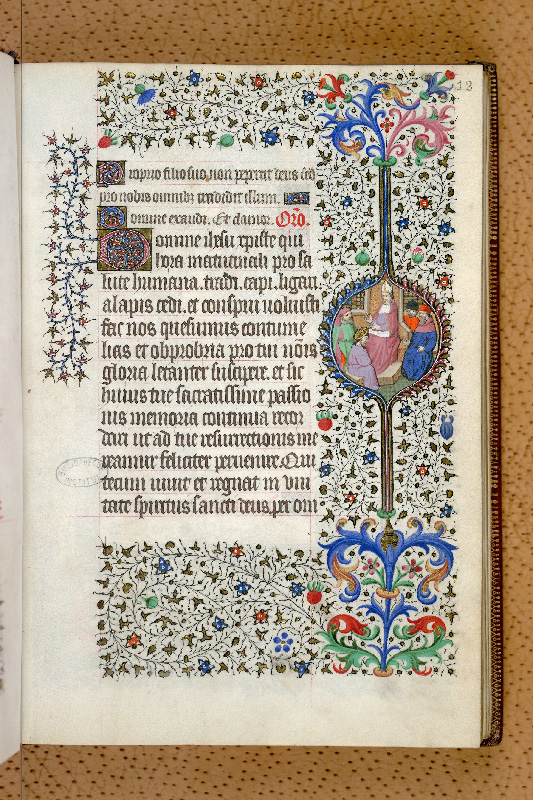 Proprio filio suo, non pepercit deus sed
pro nobis omnibus tradidit illum.
Domine exaudi. Et clamor. Oro.
Domine ihesu christe qui
hora matutinali pro sa
lute humana, tradi, capi, ligari,
alapis cedi, et conspui voluisti
fac nos quesumus contume
lias et obprobria pro tui nois
gloria letanter suscipere, et sic
huius tue sacratissime passio
nis memoria continua recor
dari ut ad tue resurrectionis me
reamur feliciter peruenire. Qui
tecum uiuit et regnat in vni
tate spiritus sancti deus, per om